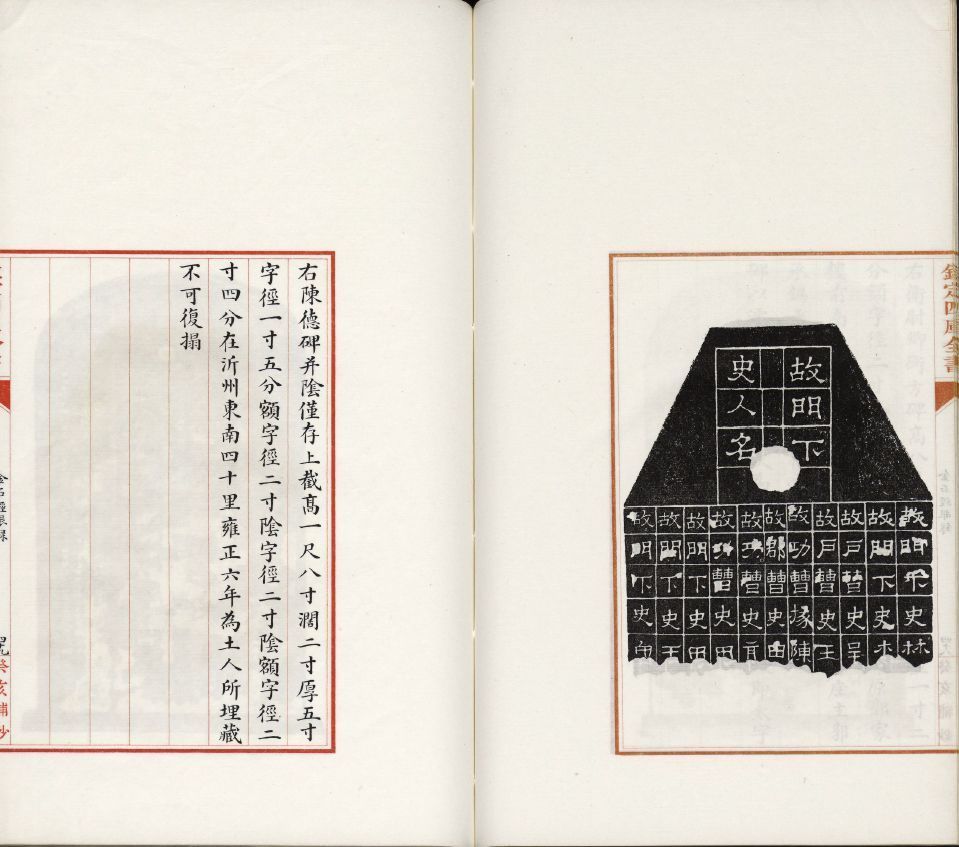 欽定四庫全書
故門下
史人名
故門下史林
故門下史
故戶曹史呈
故戶曹史王
故功曹掾陳
故郡曹史由
故功曹史
故功曹史田
故門下史田
故門下史王
故門下史
右陳德碑并陰僅存上截髙一尺八寸濶二寸厚五寸
字徑一寸五分額字徑二寸陰字徑二寸陰額字徑二
寸四分在沂州東南四十里雍正六年為土人所埋藏
不可復搨
金石經眼錄
癸亥補抄